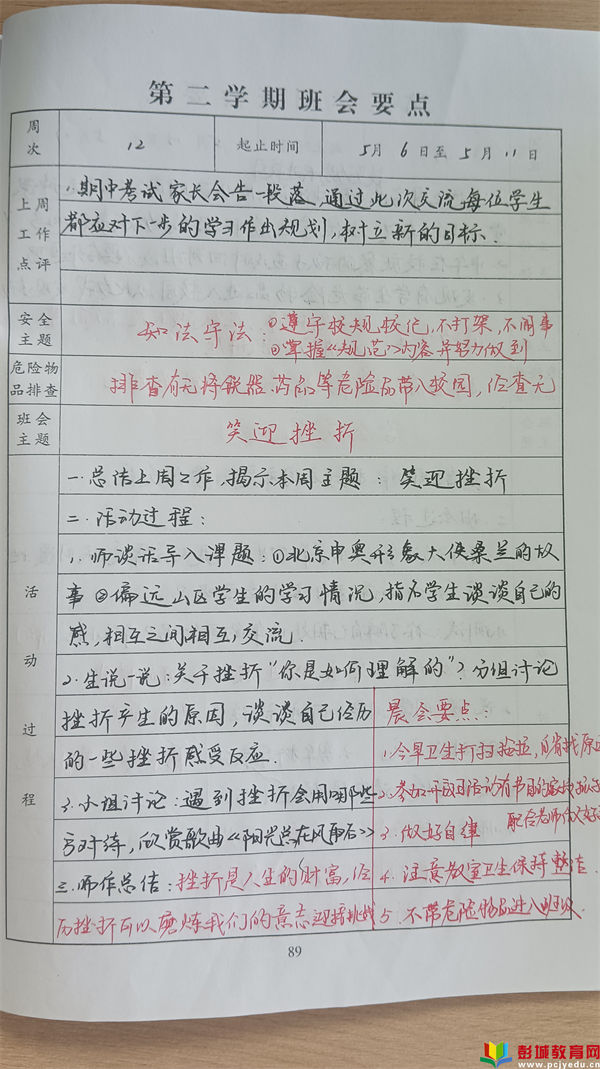 第二学期班会要点
周次 12 起止时间 5月6日至5月11日
上周工作点评
1.期中考试家长会告一段落,通过此次交流每位学生
都应对下一步的学习作出规划,树立新的目标.
安全主题
知法守法:①遵守校规校纪,不打架,不闹事
②掌握《规范》内容并努力做到
危险物品排查
排查有无将锐器药品等危险品带入校园,经查无
班会主题
笑迎挫折
活动过程
一.总结上周工作,揭示本周主题:笑迎挫折
二.活动过程:
1.师谈话导入课题:①北京申奥形象大使桑兰的故
事②偏远山区学生的学习情况,指名学生谈谈自己的
感,相互之间相互交流.
2.生说一说:关于挫折"你是如何理解的"?分组讨论
挫折产生的原因,谈谈自己经历
的一些挫折感受反应.
3.小组讨论:遇到挫折会用哪些
方对待,欣赏歌曲《阳光总在风雨后》
三.师作总结:挫折是人生的财富,经
历挫折可以磨炼我们的意志迎接挑战
晨会要点:
1.今早卫生打扫拖拉,自省找原因
2.参加开放日活动有节目的
配合老师做好
3.做好自律
4.注意教室卫生保持整洁.
5.不带危险物品进入班级.
89
彭城教育网
www.pcjyedu.cn